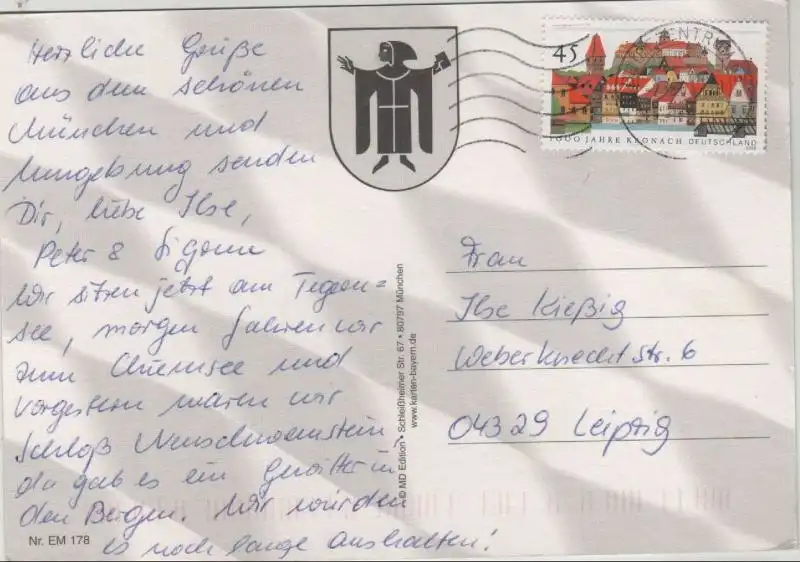 Herzliche Grüße
aus dem schönen
München und
Umgebung senden
Dir, liebe Ilse,
Peter &
Wir sitzen jetzt am Tegern=
see, morgen fahren wir
zum Chiemsee und
vorgestern waren wir
Schloß Neuschwanstein,
da gab es ein Gewitter in
den Bergen. Wir würden
es noch lange aushalten!
Nr. EM 178
© MD Edition • Schleißheimer Str. 67 • 80797 München
www.karten-bayern.de
45
1000 JAHRE KRONACH DEUTSCHLAND
ZENTR
Frau
Ilse Kießig
Weberknechtstr. 6
04329 Leipzig